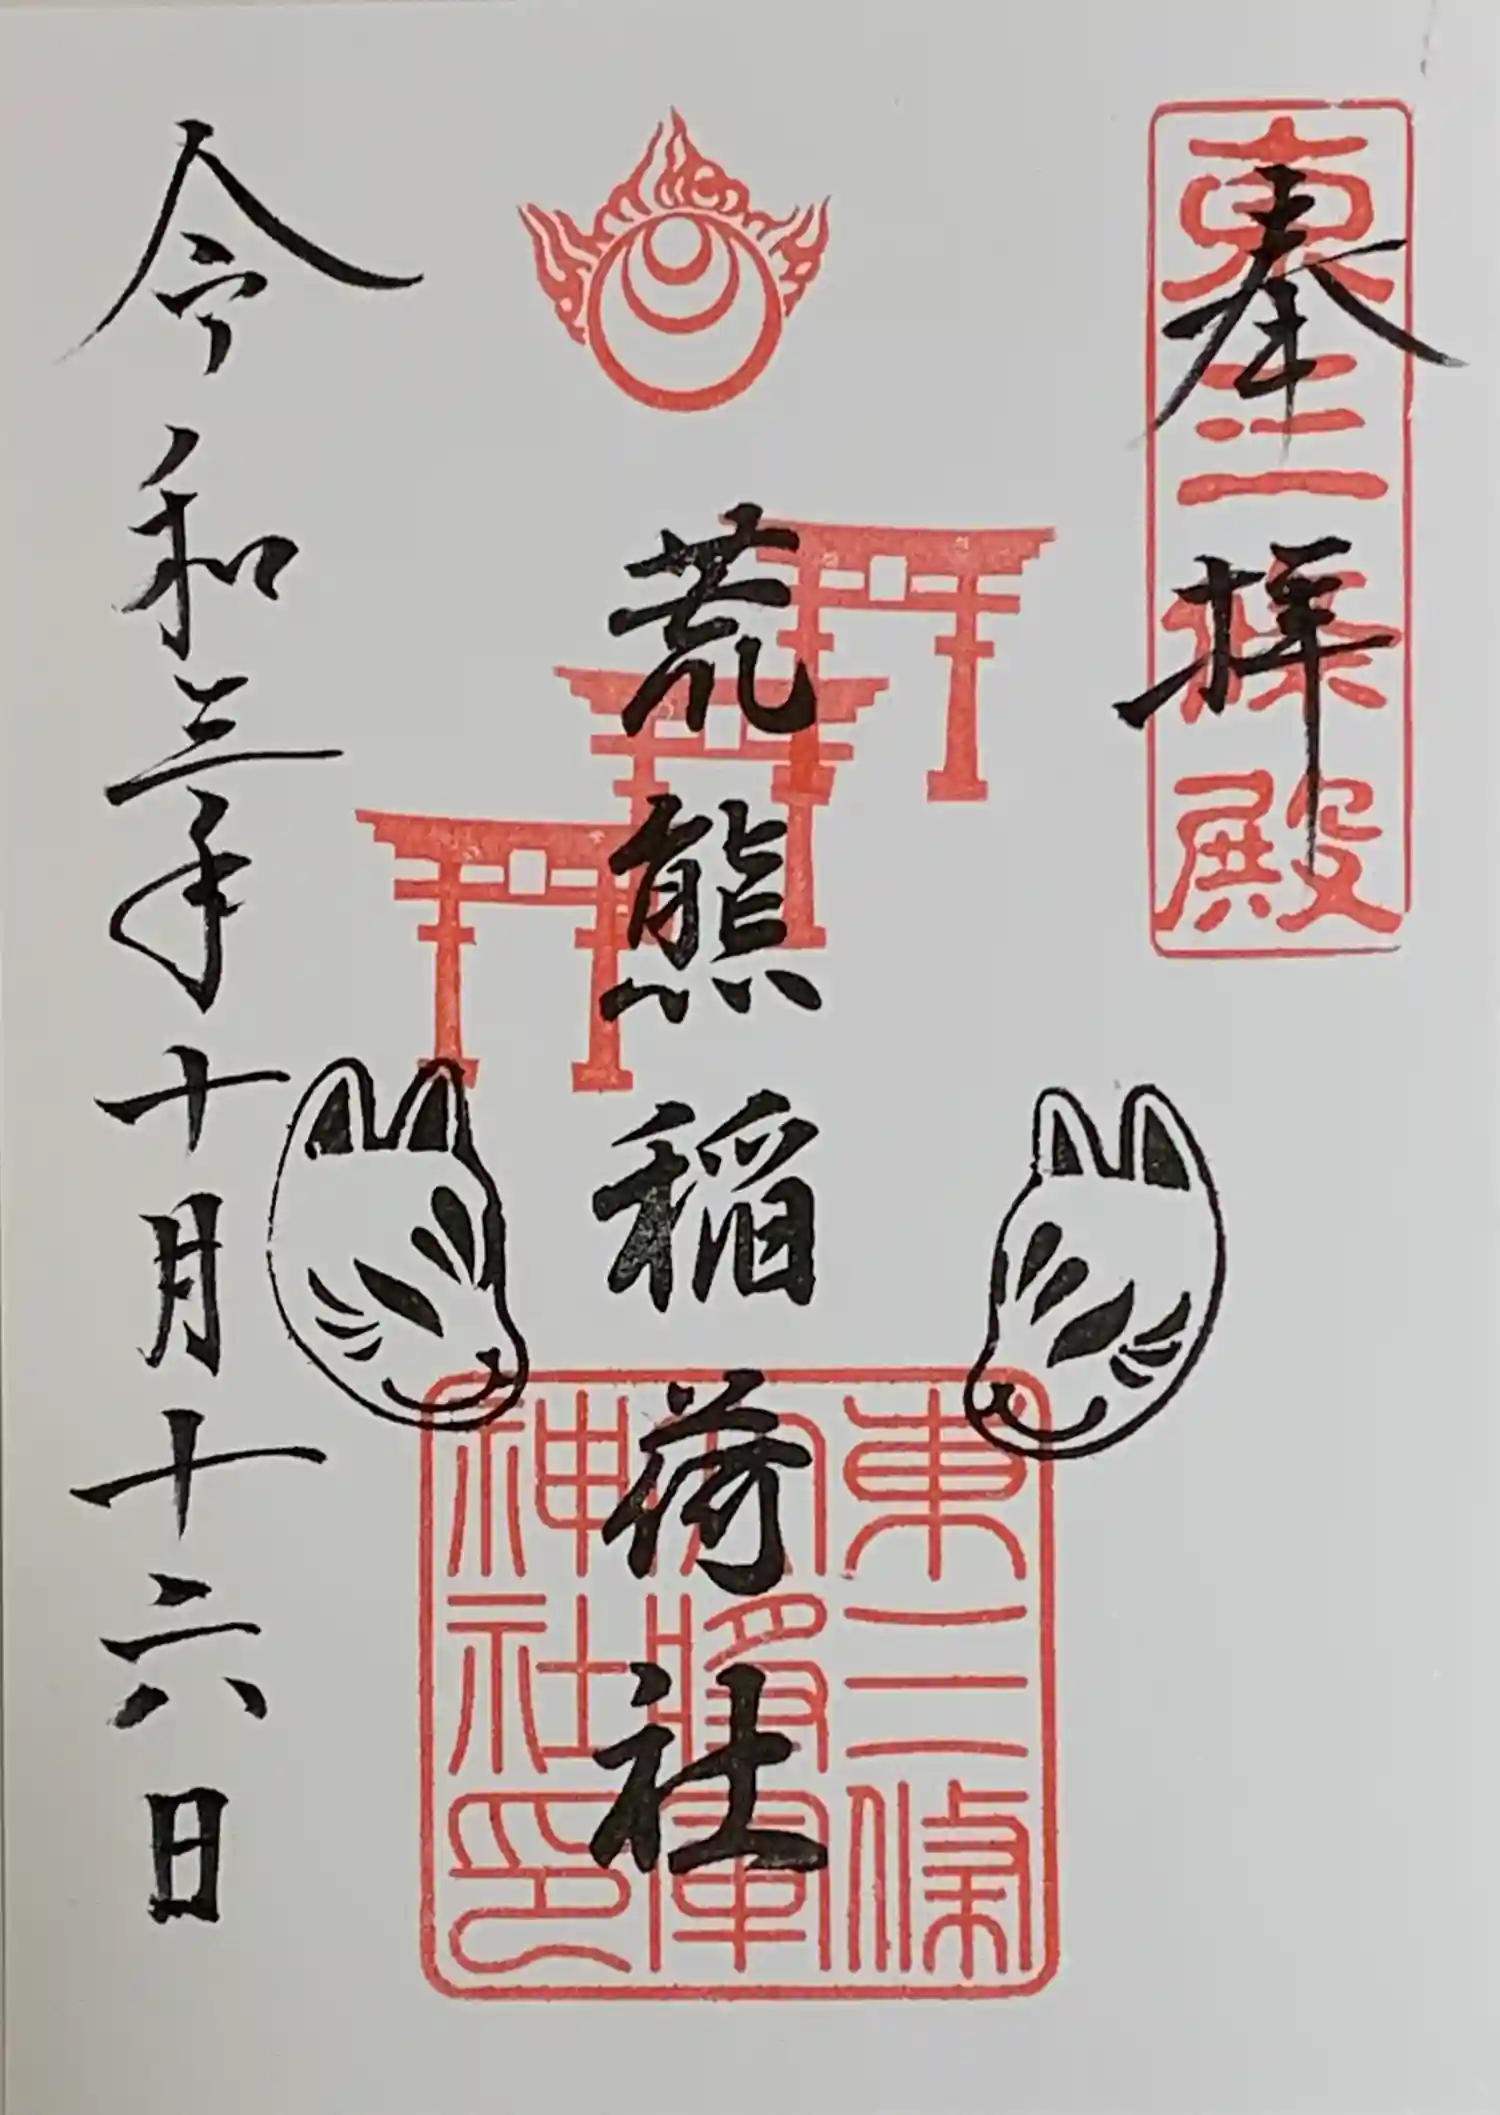 奉拝
東三條殿
荒熊稲荷社
東三條
大将軍
神社印
令和三年十月十六日